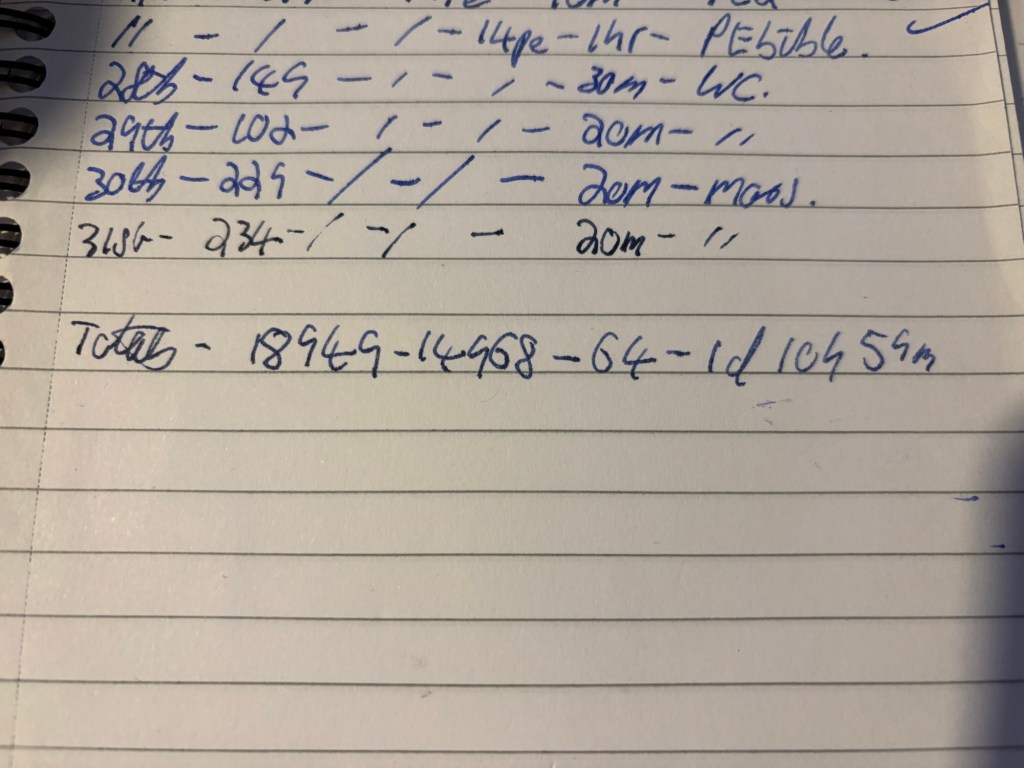 " - / - / - 14pe - 1hr - PEbible. ✓
28th - 149 - / - / - 30m - WC.
29th - 102 - / - / - 20m - "
30th - 229 - / - / - 20m - maas.
31st - 234 - / - / - 20m - "
Totals - 18949 - 14968 - 64 - 1d 10h 59m